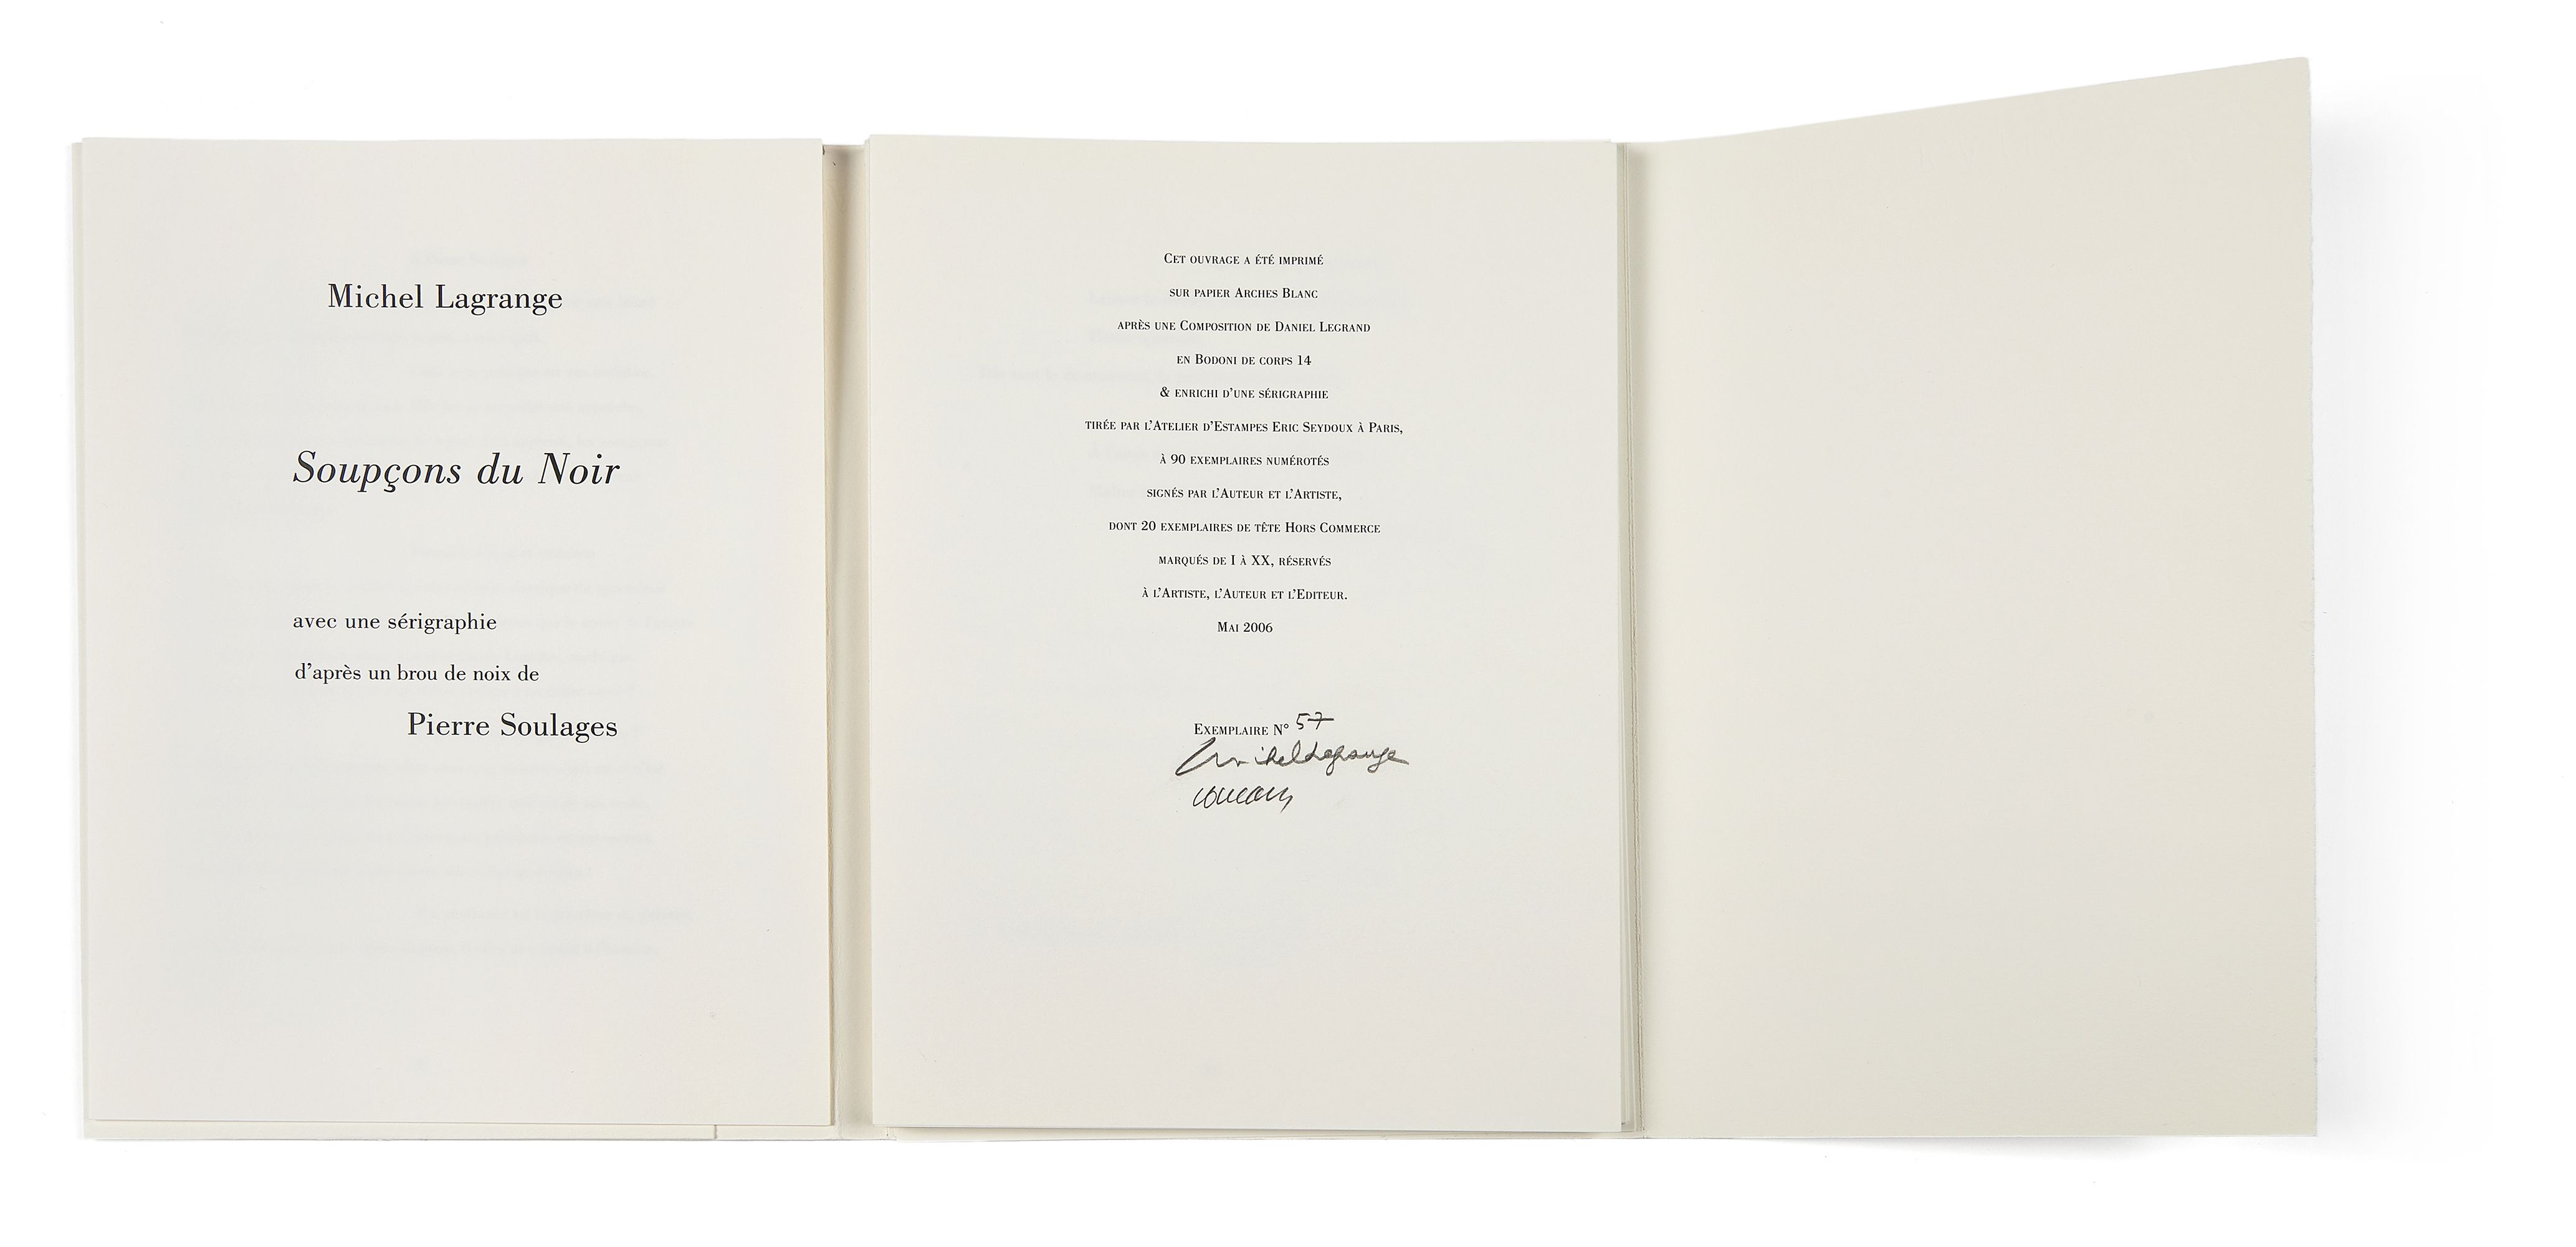 Michel Lagrange
Soupçons du Noir
avec une sérigraphie
d'après un brou de noix de
Pierre Soulages
Cet ouvrage a été imprimé
sur papier Arches Blanc
après une Composition de Daniel Legrand
en Bodoni de corps 14
& enrichi d'une sérigraphie
tirée par l'Atelier d'Estampes Eric Seydoux à Paris,
à 90 exemplaires numérotés
signés par l'Auteur et l'Artiste,
dont 20 exemplaires de tête Hors Commerce
marqués de I à XX, réservés
à l'Artiste, l'Auteur et l'Editeur.
Mai 2006
Exemplaire N° 57
Michel Lagrange